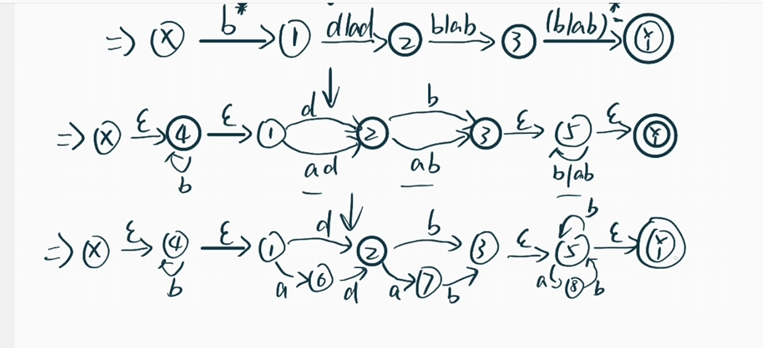 => X b* 1 d|ad 2 b|ab 3 (b|ab)* Y
=> X ε 4 ε 1 d 2 b 3 ε 5 ε Y
b ad ab b|ab
=> X ε 4 ε 1 d 2 b 3 ε 5 b ε Y
b a 6 d a 7 b a b 8 b